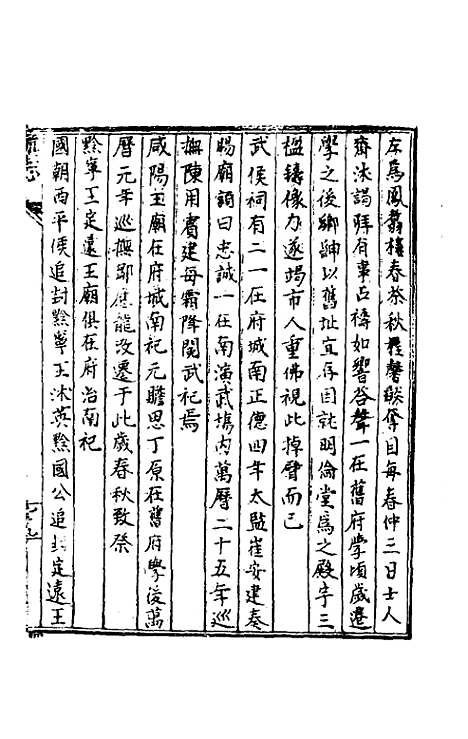 左為鳳翥樓春茶秋桂馨賧奪目每春仲三日士人
齊沐謁拜有事占禱如響荅聲一在舊府學頃歲遷
學之後鄉紳以舊址宜存因就明倫堂為之殿宇三
楹鑄像力遂竭市人重佛視此掉臂而已
武侯祠有二一在府城南正德四年太監崔安建奏
賜廟額曰忠誠一在南演武場內萬曆二十五年巡
撫陳用賓建每霜降閱武祀焉
咸陽王廟在府城南祀元贍思丁原在舊府學後萬
曆元年巡撫鄒應龍改遷于此歲春秋致祭
黔寧王定遠王廟俱在府治南祀
國朝西平侯追封黔寧王沐英黔國公追封定遠王